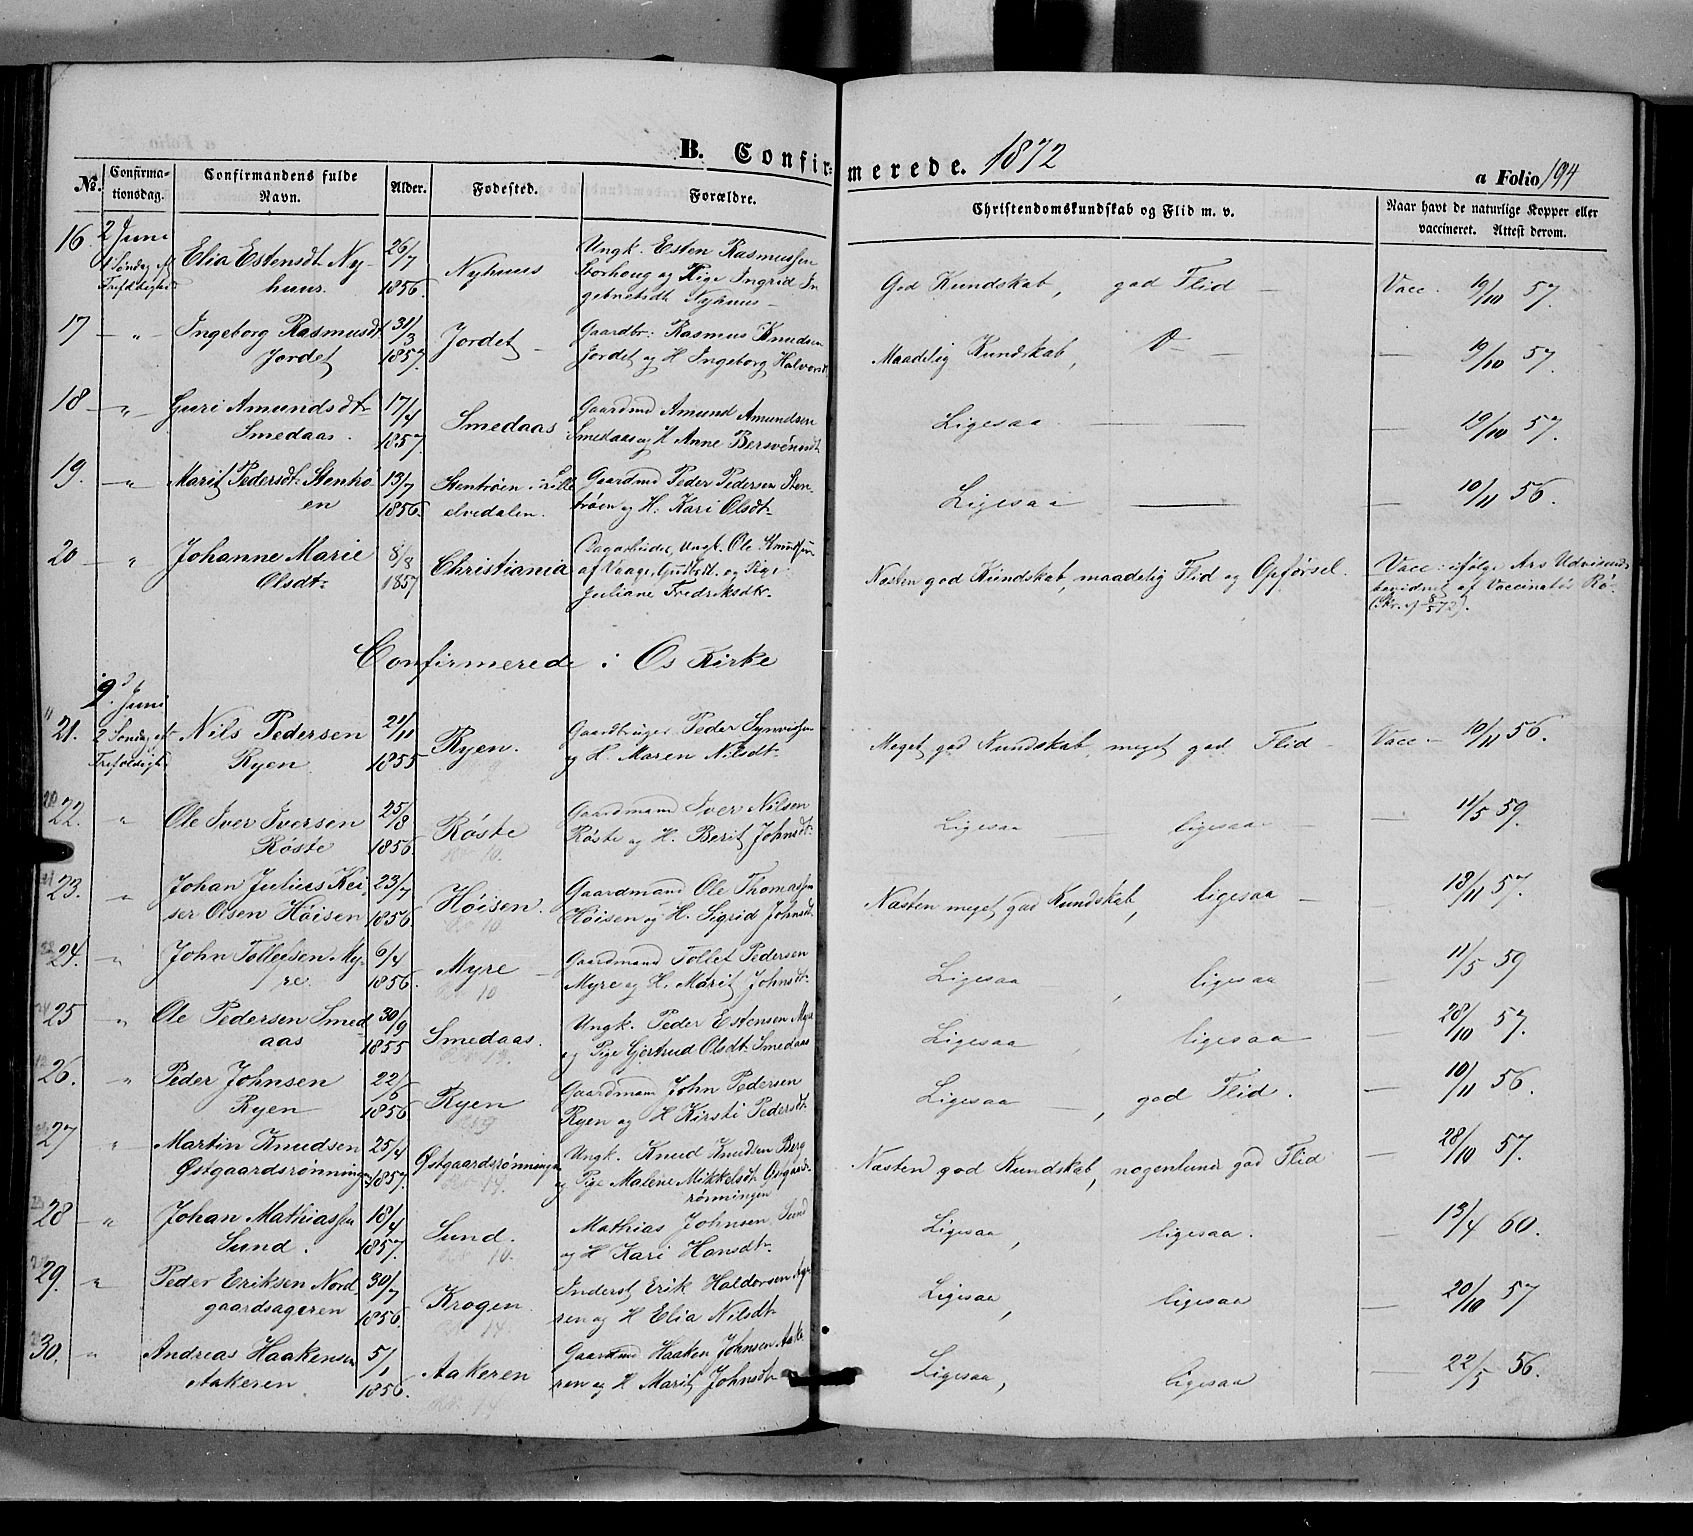 B. Confirmerede. 1872
a Folio 194
No. Confirmationsdag. Confirmandens fulde Navn. Alder. Fødested. Forældre. Christendomskundskab og Flid m. v. Naar havt de naturlige Kopper eller vaccineret. Attest derom.
16. 2 Juni 1 Søndag ef Trefoldighed Elia Estensdt Nyhuus. 26/7 1856. Nyhuus Ungk. Esten Rasmussen Storhoug og Pige Ingrid Ingebretsdt Nyhuus – God Kundskab, god Flid – Vacc. 19/10 57.
17 – " – Ingeborg Rasmusdt Jordet 31/3 1857. Jordet – Gaardbr: Rasmus Knudsen Jordet og H. Ingeborg Halvorsdt Maadelig Kundskab, – 19/10 57.
18 – " – Guri Amundsdtr Smedaas. 17/4 1857. Smedaas Gaardmd Amund Amundsen Smedaas og H. Anne Bersvendsdt Ligesaa – 19/10 57.
19. – " Marit Pedersdt: Stenroen 13/7 1856. Stentrøen i Lille elvedalen. Gaardmd Peder Pedersen Stentrøen og H: Kari Olsdt– Ligesaa – 10/11 56.
20 – " Johanne Marie Olsdt– 8/8 1857 Christiania Dagarbeider, Ungk. Ole Knudsen af Vaage, Gudbdl. og Pige Juliane Fredriksdtr. Næsten god Kundskab, maadelig Flid og Opførsel. Vacc: ifølge Udvisende af Vaccinatør 8/5 72).
Confirmerede i Os Kirke
21. 9d Juni 2 Søndag ef Trefoldighd Nils Pedersen Ryen 21/11 1855 Ryen. Gaardbruger Peder Synvissen og H. Maren Nilsdt– Meget god Kundskab, meget god Flid – Vacc – 10/11 56.
22. " Ole Iver Iversen Røste 25/8 1856. Røste Gaardmand Iver Nilsen Røste og H. Berit Johnsdt– Ligesaa – ligesaa – 11/5 59.
23. " Johan Julius Keiser Olsen Høisen 23/7 1856. Høisen. Gaardmand Ole Thomassen Høisen og H. Sigrid Johnsdt. Næsten meget god Kundskab, ligesaa – 18/11 57.
24. " John Tollefsen Myre. 6/4 1856. Myre – Gaardmand Tollef Pedersen Myre og H. Marit Johnsdt– Ligesaa, ligesaa – 11/5 59
25 " Ole Pedersen Smedaas 30/9 1855 Smedaas. Ungk. Peder Estensen Myre og Pige Gjertrud Olsdt. Smedaas Ligesaa, ligesaa – 28/10 57.
26. " Peder Johnsen Ryen 22/6 1856 Ryen Gaardmand John Pedersen Ryen og H Kirsti Pedersdt– Ligesaa –, god Flid. – 10/11 56.
27 " Martin Knudsen Østgaardsrønningen 25/4 1857. Østgaardsrønningen Ungk. Knud Knudsen Berg og Pige Malene Mikkelsdt Østgaardsrønningen Næsten god Kundskab, nogenlunde god Flid – 28/10 57.
28 – " Johan Mathiassen Sund. 18/4 1857. Sund. Mathias Johnsen Sund og H Kari Hansdt– Ligesaa, ligesaa. – 13/4 60.
29. " Peder Eriksen Nordgaardsageren 30/7 1856. Krogen Inderst Erik Haldorsen Ageren og H Elia Nilsdt– Ligesaa, ligesaa – 20/10 57
30. " Andreas Haakensen Aakeren 5/1 1856. Aakeren Gaardmd Haaken Johnsen Aakeren og H Marit Johnsdt– Ligesaa, ligesaa – 22/5 56.